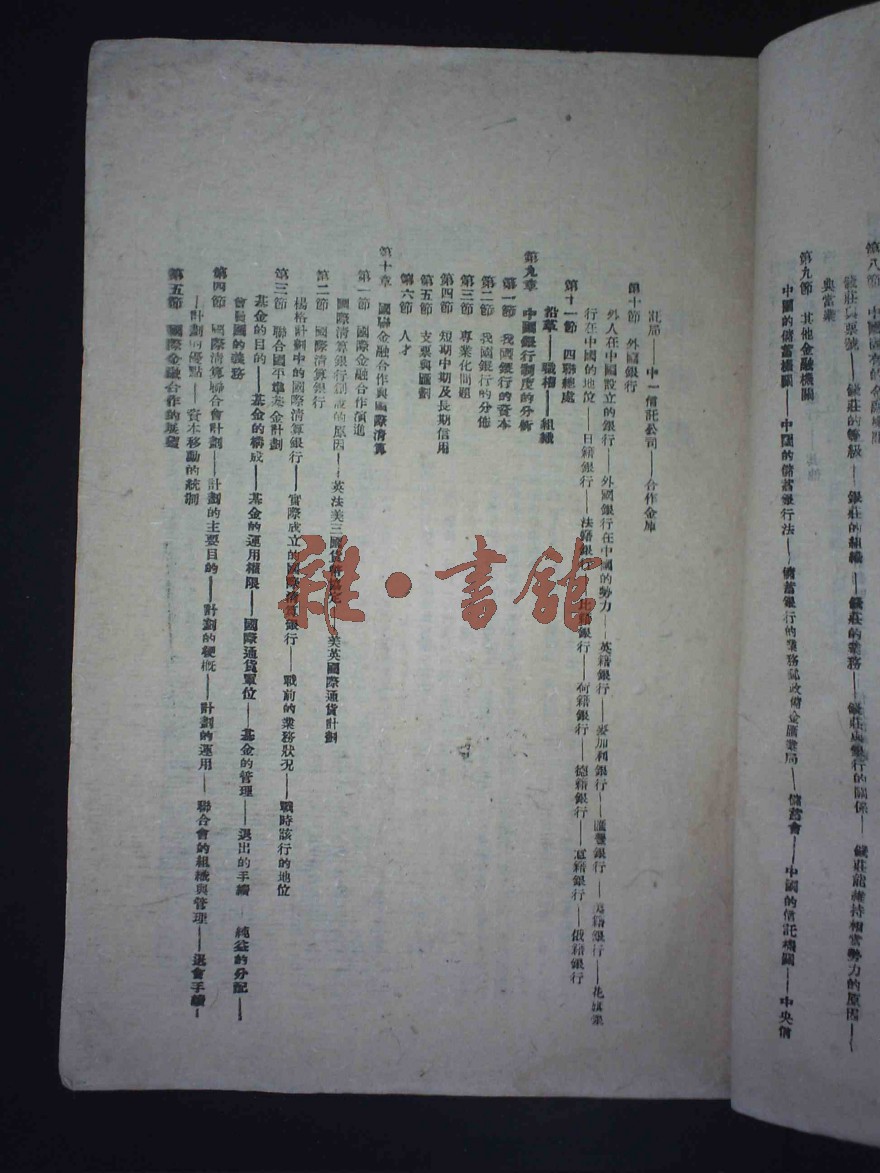 錢莊與票號——錢莊的等級——銀莊的組織——錢莊的業務——錢莊與銀行的關係——錢莊能維持相當勢力的原因——
與當業
第九節 其他金融機關
中國的儲蓄機關——中國的儲蓄銀行法——儲蓄銀行的業務郵政儲金匯業局——儲蓄會——中國的信託機關——中央信
託局——中一信託公司——合作金庫
第十節 外國銀行
外人在中國設立的銀行——外國銀行在中國的勢力——英籍銀行——麥加利銀行——匯豐銀行——美籍銀行——花旗銀
行在中國的地位——日籍銀行——法籍銀行——比籍銀行——荷籍銀行——德籍銀行——意籍銀行——俄籍銀行
第十一節 四聯總處
沿革——職權——組織
第九章 中國銀行制度的分析
第一節 我國銀行的資本
第二節 我國銀行的分佈
第三節 專業化問題
第四節 短期中期及長期信用
第五節 支票與匯劃
第六節 人才
第十章 國際金融合作與國際清算
第一節 國際金融合作演進
國際清算銀行創設的原因——英法美三國貨幣協定——美英國際通貨計劃
第二節 國際清算銀行
楊格計劃中的國際清算銀行——實際成立的國際清算銀行——戰前的業務狀況——戰時該行的地位
第三節 聯合國平準基金計劃
基金的目的——基金的構成——基金的運用權限——國際通貨單位——基金的管理——退出的手續——純益的分配——
會員國的義務
第四節 國際清算聯合會計劃——計劃的主要目的——計劃的梗概——計劃的運用——聯合會的組織與管理——退會手續——
——計劃的優點——資本移動的統制
第五節 國際金融合作的展望
雜·書館